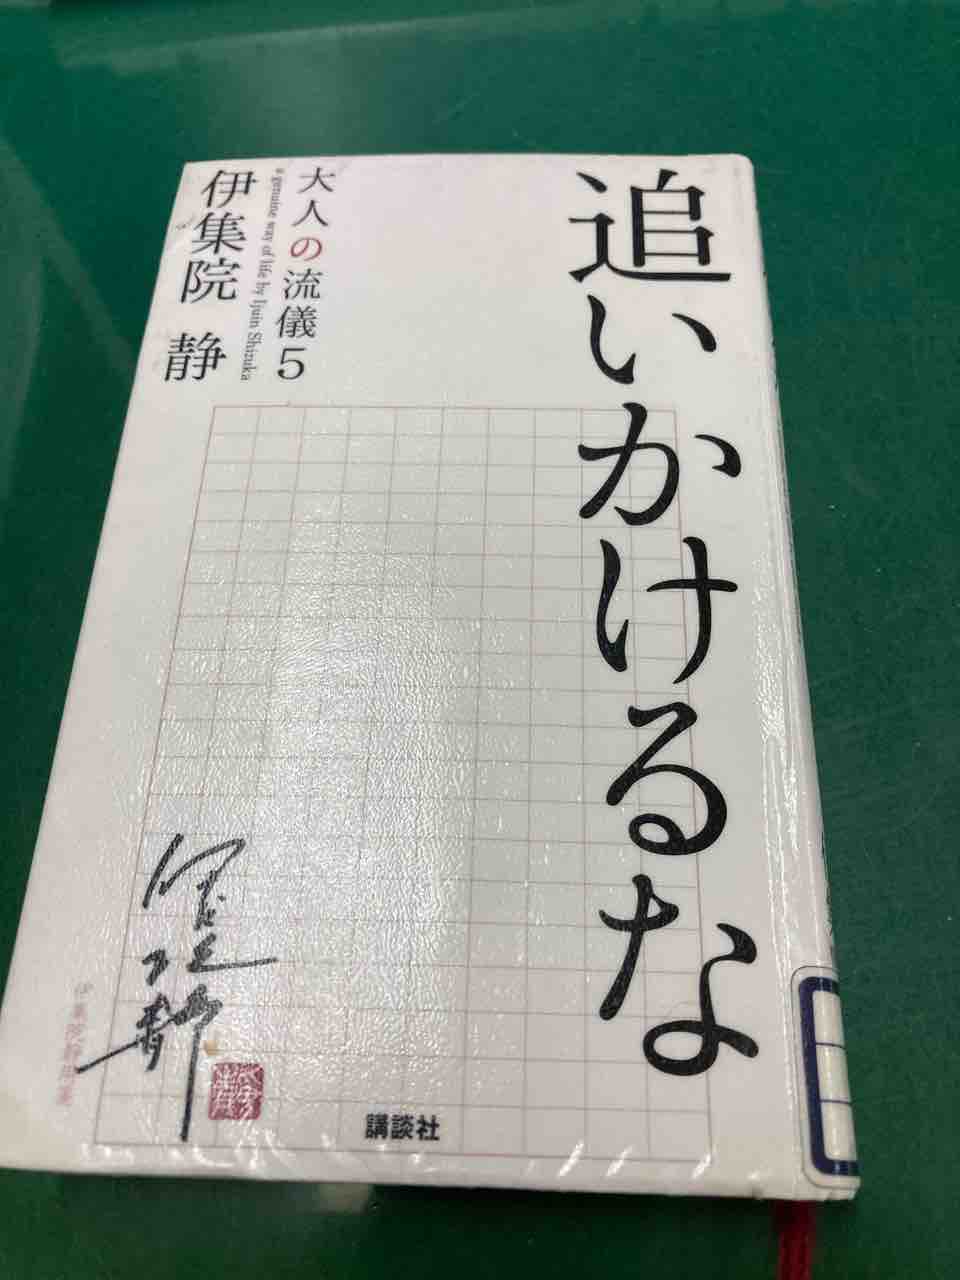 追いかけるな
大人の流儀5
a genuine way of life by Ijuin Shizuka
伊集院 静
伊集院静
講談社